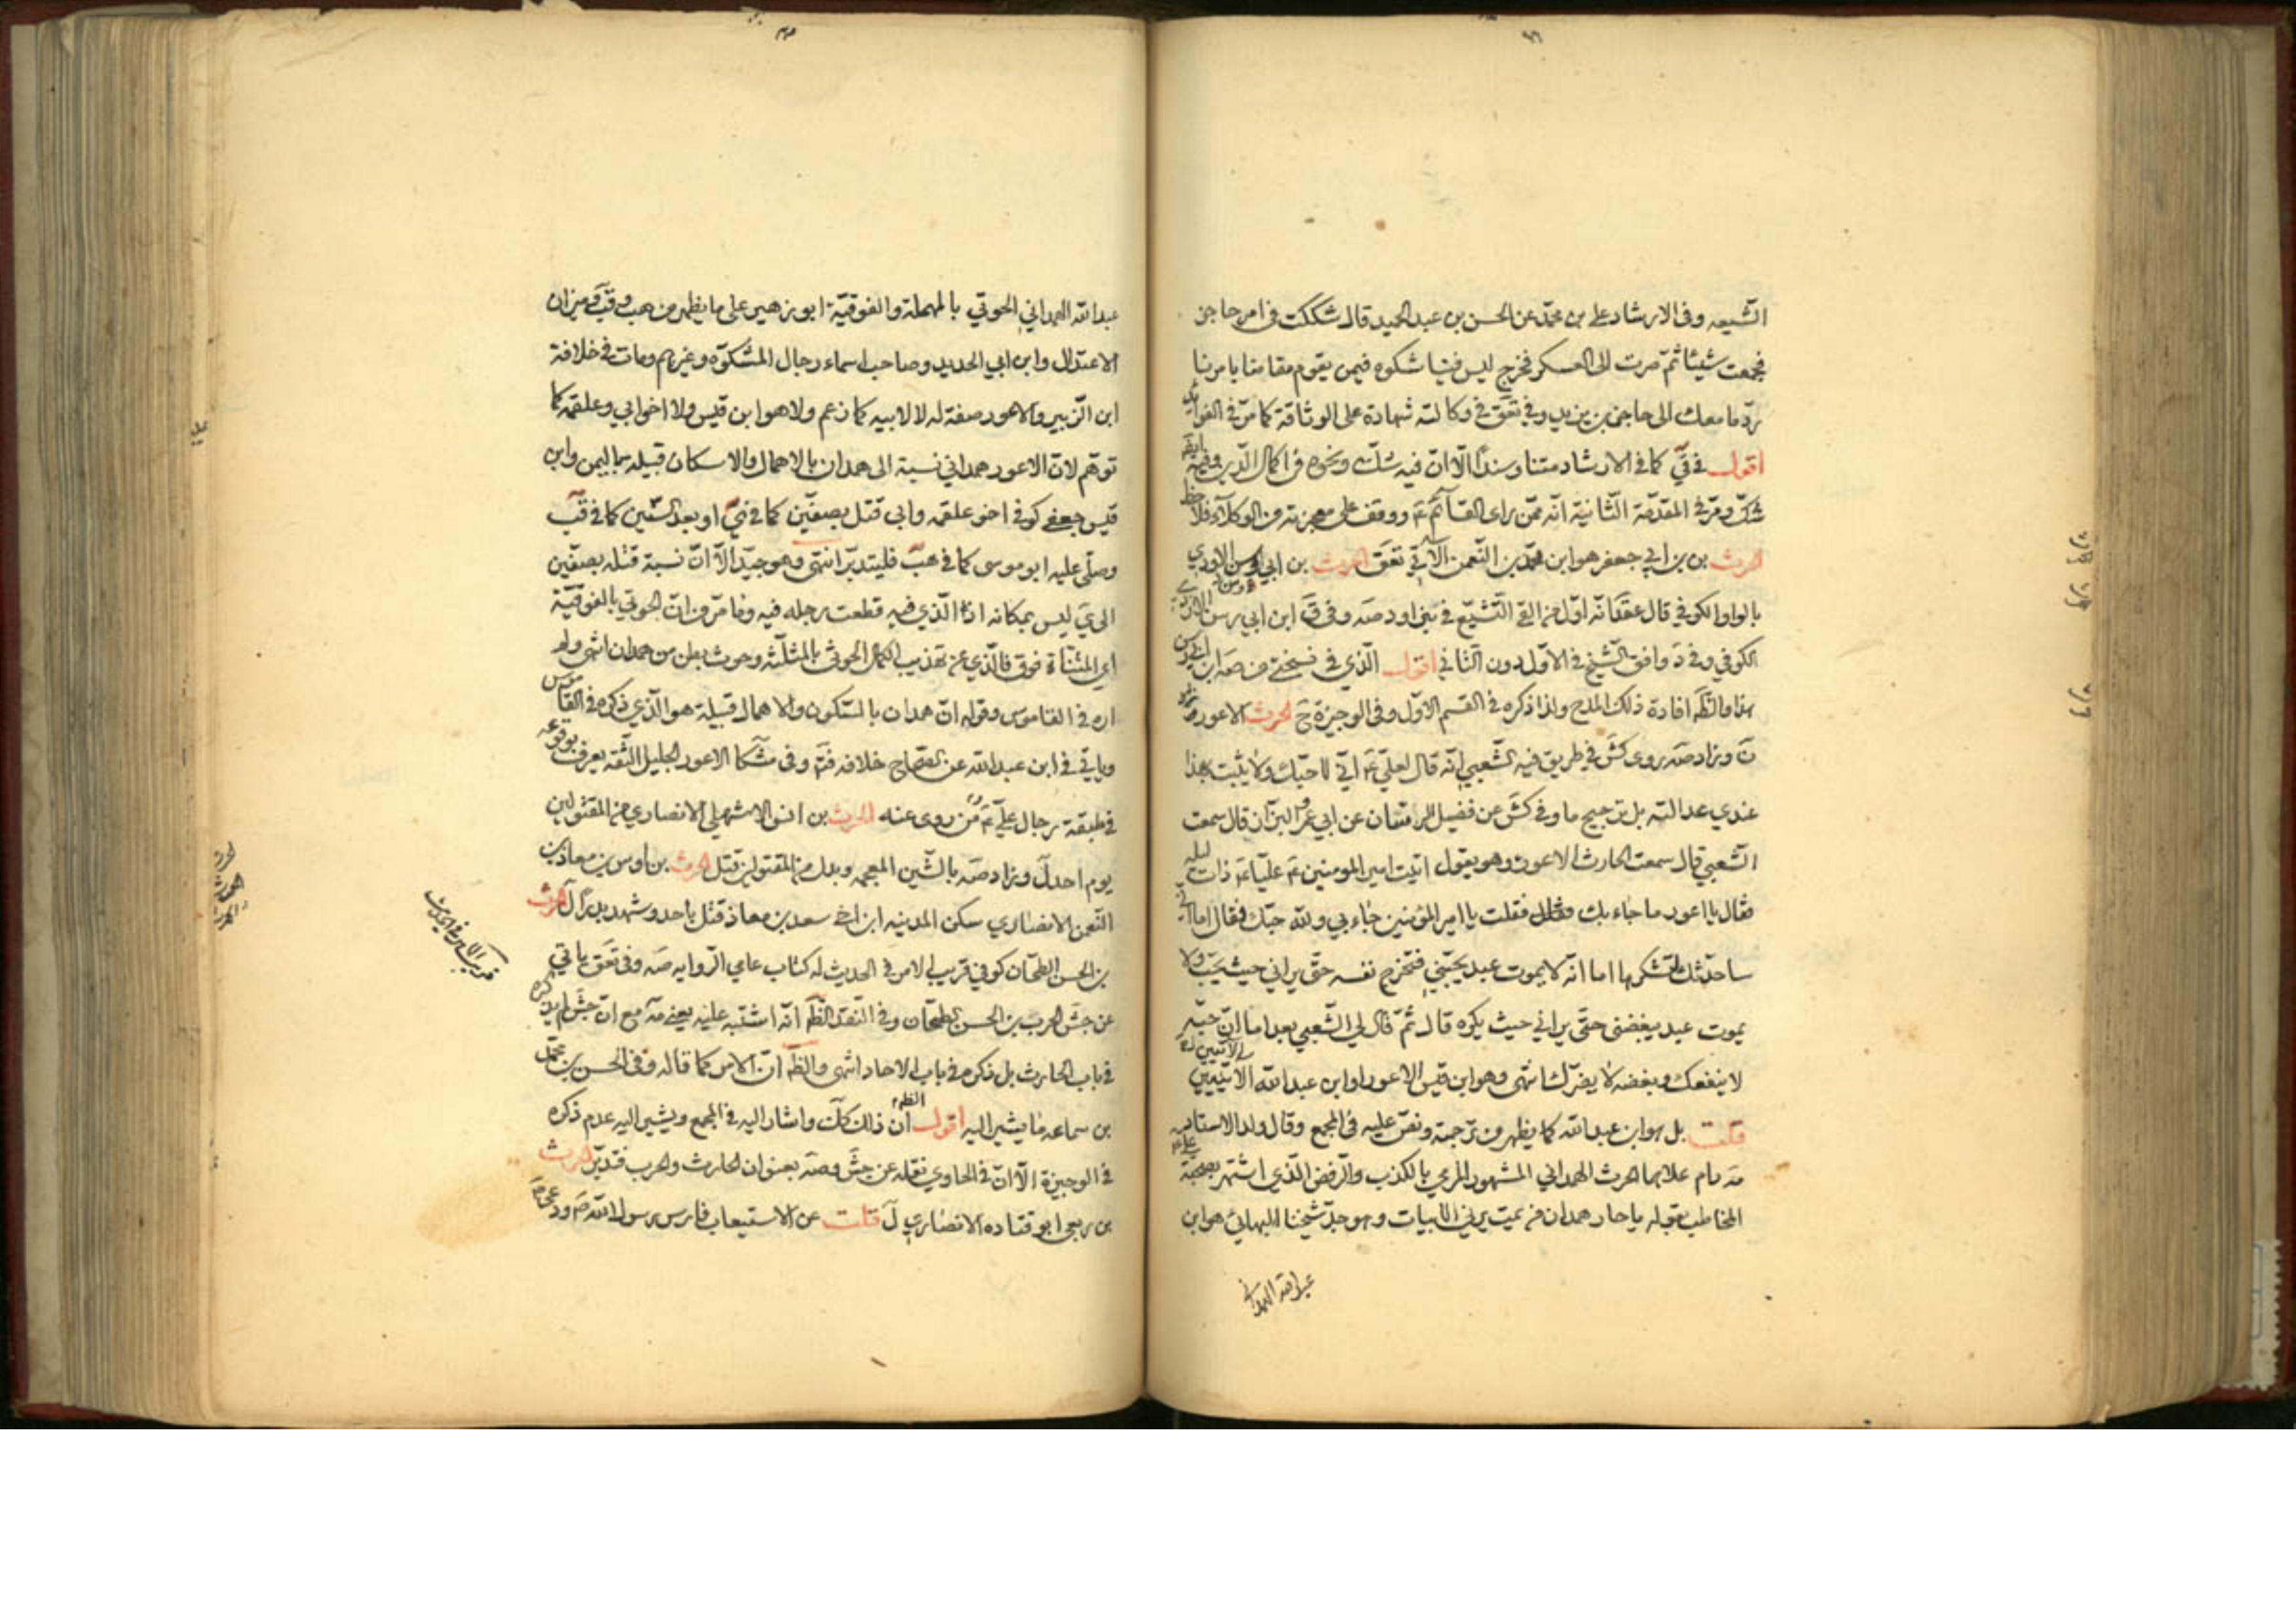 الشيعه وفى الارشاد على بن محمّد عن الحسن بن عبد الحميد قال شككت فى امر حاجز
فجمعت شيئا ثمّ صرت الى العسكر فخرج ليس فينا شك ولا فيمن يقوم مقامنا بامرنا
ردّ ما معك الى حاجز بن يزيد وفي تعق في وكالته شهادة على الوثاقة كما مرّ فى الفوائد
اقول في كما في الارشاد متنا وسندًا الّا انّ فيه شكّ ونحوه في اكمال الدين
شكّ ومرّ في المقدّمة الثّانية انّه ممّن راى القائم عَ ووقف على معجزته من الوكلاء فلاحظ
الحرث بن ابي جعفر هو ابن محمّد بن النّعمن الآتي تعق الحرث بن ابي
بالواو الكوفي قال عقد انّه اوّل من القى التّشيّع في بني اود صه وفي ابن ابي رسن
الكوفي وفي د وافق الشّيخ في الاوّل دون الثّاني اقول الّذي في نسختي من صه ابن ابي رسن
هذا والظّ افادة ذلك المدح ولذا ذكره في القسم الاوّل وفى الوجيزة ح الحرث الاعور
ن وزاد صه روى كش في طريق فيه الشّعبي انّه قال لعلي عَ انّي لاحبّك ولا يثبت بهذا
عندي عدالته بل ترجيح ما وفي كش عن فضيل الرسّان عن ابي عمر البزّاز قال سمعت
الشّعبي قال سمعت الحارث الاعور وهو يقول اتيت امير المومنين عَ عليا عَ ذات ليله
فقال يا اعور ما جاء بك فقلت يا امير المؤمنين جاء بي والله حبّك فقال اما انّي
ساحدّثك لتشكرها اما انّه لا يموت عبد يحبّني فتخرج نفسه حتّى يراني حيث يحبّ ولا
يموت عبد يبغضني حتّى يراني حيث يكره قال ثمّ قال لي الشّعبي بعد اما انّ حبّه
لا ينفعك وبغضه لا يضرّك انتهى وهو ابن قيس الاعور او ابن عبد الله الاتيين
قلت بل هو ابن عبد الله كما يظهر من ترجمته ونصّ عليه في المجمع وقال ولد الاستاد
مه دام علاهما الحرث الهمداني المشهور المرمي بالكذب والرّفض الّذي اشتهر بصحبة علي عَ
المخاطب بقوله يا حار همدان من يمت يرني الابيات وهو جدّ شيخنا البهائي هو ابن
عبد الله الهمداني
عبدالله الهمداني الحوتي بالمهملة والفوقيّة ابو زهير على ما يظهر من هب وقب وميزان
الاعتدال وابن ابي الحديد وصاحب اسماء رجال المشكوة وغيرهم ومات في خلافة
ابن الزّبير والاعور صفة له لا لابيه كما زعم ولا هو ابن قيس ولا اخو ابي وعلقمه كما
توهّم لانّ الاعور همداني نسبة الى همدان بالاهمال والاسكان قبيله باليمن وابن
قيس جعفي كوفي اخو علقمه وابي قتل بصفّين كما في او بعد السّتين كما في قب
وصلّى عليه ابو موسى كما في هب فليتدبّر انتهى وهو جيّد الّا انّ نسبة قتله بصفّين
الى ي ليس بمكانه اذ الّذي فيه قطعت رجله فيه وما مرّ من انّ الحوتي بالفوقيّة
اي المثنّاة فوق فالّذي عن تهذيب الكمال الحوثي بالمثلّثه وحوث بطن من همدان انتهى ولم
اره في القاموس وقوله انّ همدان بالسّكون والاهمال قبيلة هو الّذي ذكره في القاموس
وياتي في ابن عبد الله عن الصّحاح خلافه فتم وفى مشكا الاعور الجليل الثّقه يعرف بوقوعه
في طبقة رجال علي عَ من روى عنه الحرث بن انس الاشهلي الانصاري من المقتولين
يوم احد ل وزاد صه بالشّين المعجمه وبدل من المقتولين قتل الحرث بن اوس بن معاذ بن
النّعمن الانصاري سكن المدينه ابن اخي سعد بن معاذ قتل باحد وشهد بدرًا ل الحرث
بن الحسن الطحّان كوفي قريب الامر في الحديث له كتاب عامي الرّوايه صه وفى تعق ياتي
عن جش الحرب بن الحسن الطحّان وفي النّقد الظّ انّه اشتبه عليه يعني مه مع انّ جش لم يذكره
في باب الحارث بل ذكره في باب الاحاد انتهى والظّ انّ الامر كما قاله وفى الحسن بن محمّد
بن سماعه ما يشير اليه اقول الظّ انّ ذلك كك واشار اليه في المجمع ويشير اليه عدم ذكره
في الوجيزة الّا انّ في الحاوي نقله عن جش وصه بعنوان الحارث والحرب فتدبّر الحرث
بن ربعي ابو قتاده الانصاري ل قلت عن الاستيعاب فارس رسول الله صَ
قريب الامر في الحديث